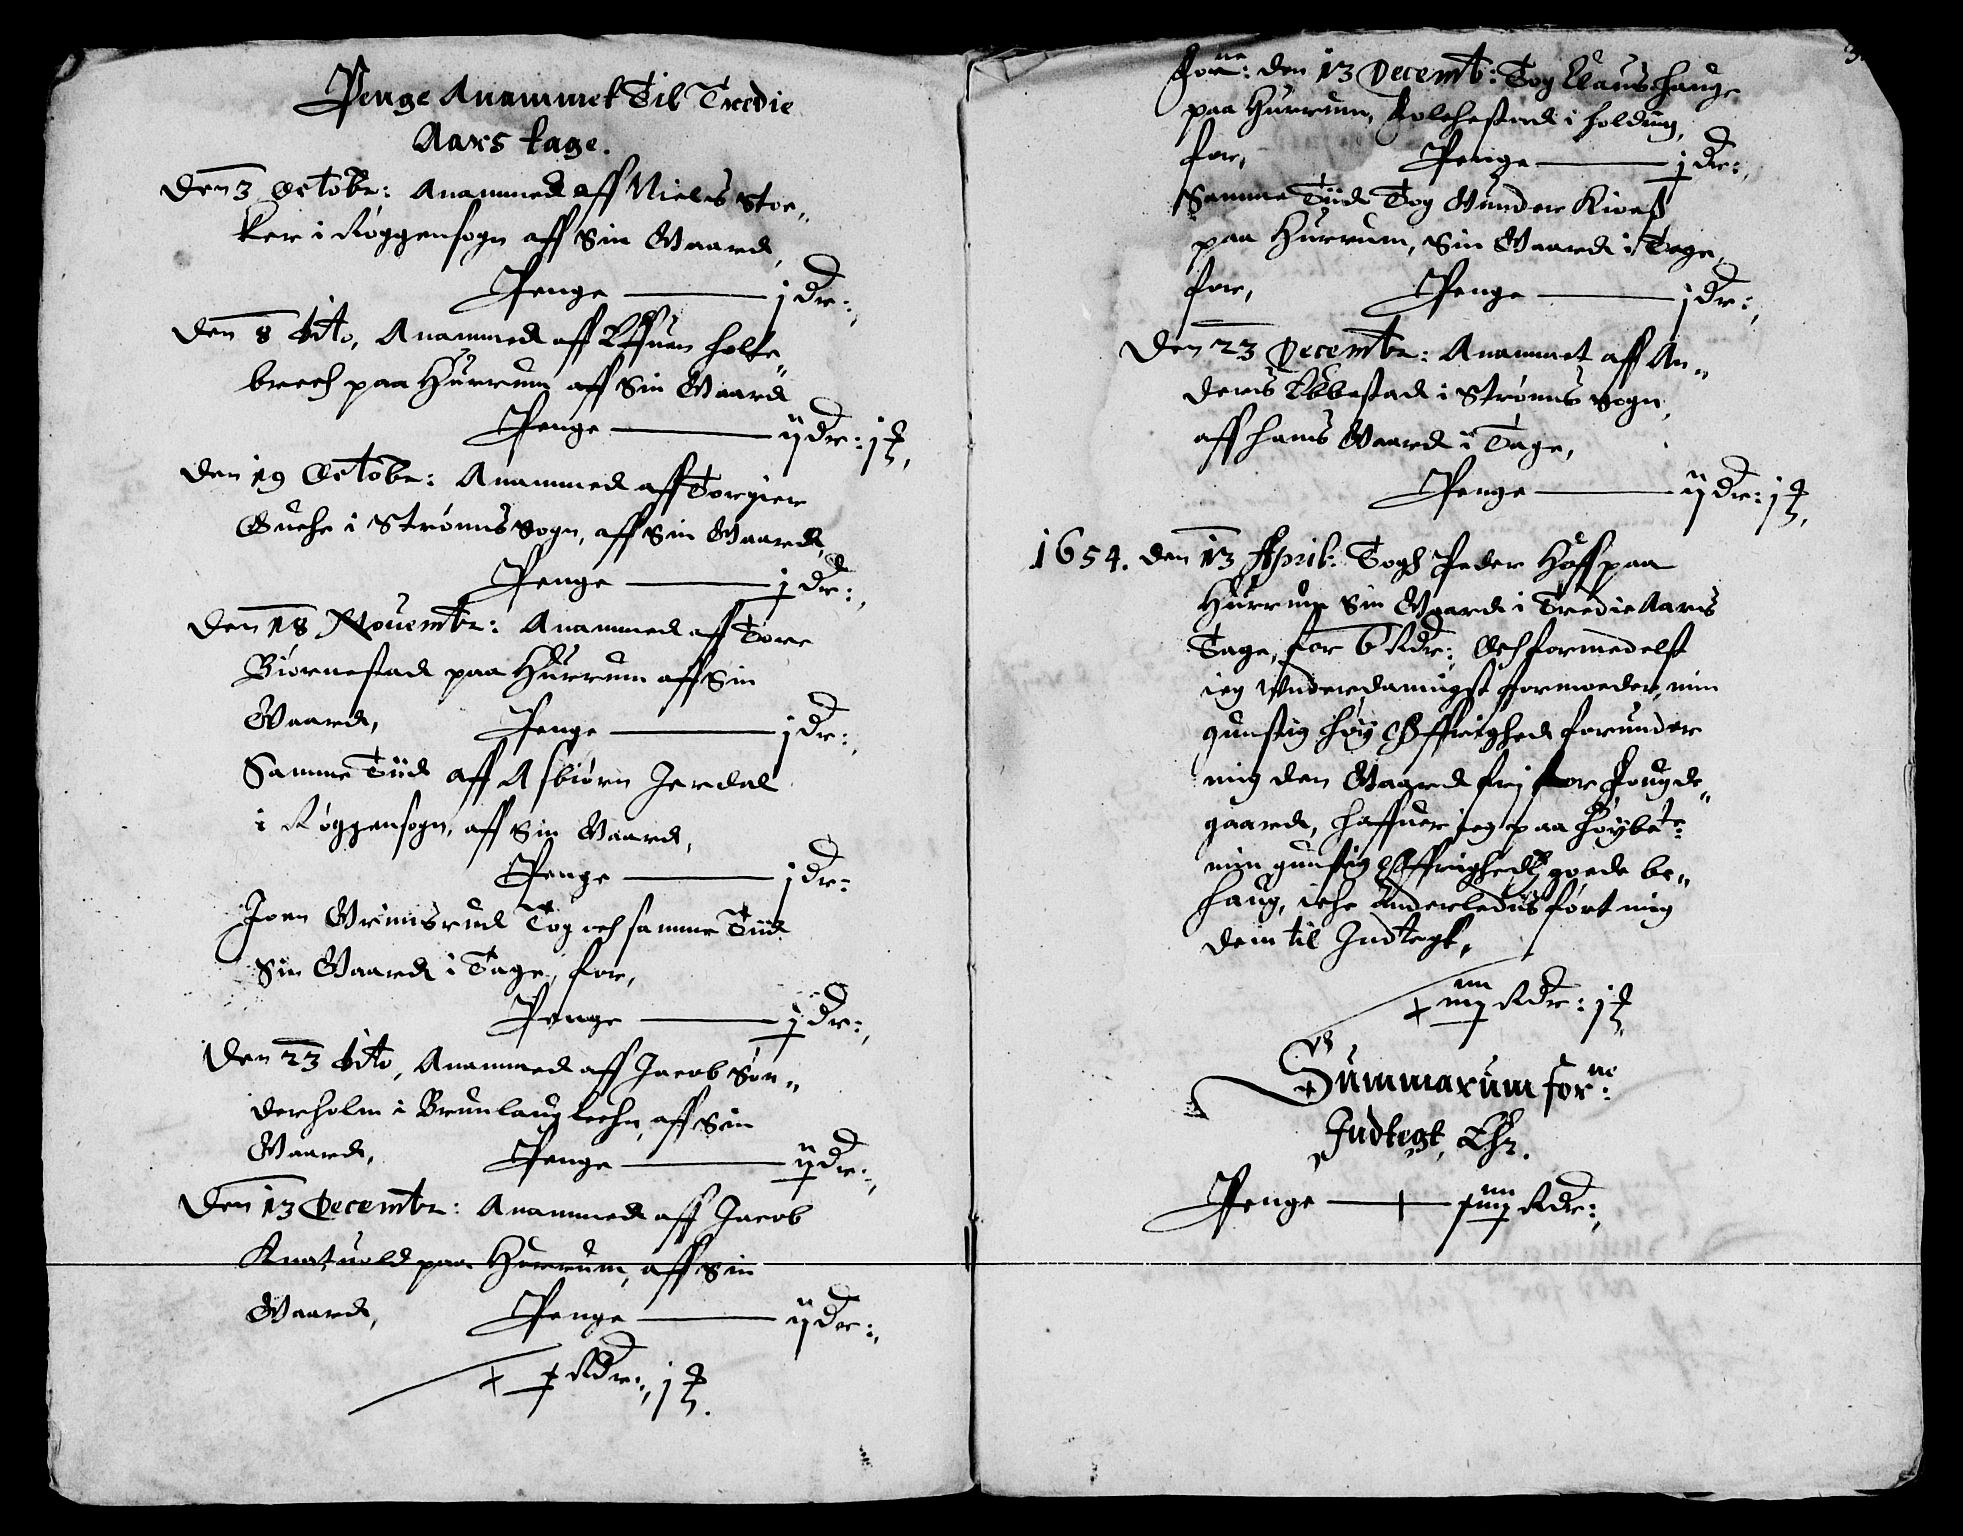 Penge Anammet Til Tredie
Aars tage.
Den 3 Octobr: Anammed aff Niels Stoc„
ker i Røggensogn aff Sin Gaard,
Penge — j Dr:,
Den 8 dito, Anammed aff Effuen Holte„
brech paa Hurrum aff Sin Gaard
Penge — ij Dr: j ₰,
Den 19 Octobr: Anammed aff Torgier
i Strømssogn, aff Sin Gaard,
Penge — j Dr:,
Den 18 Nouembr: Anammed aff Tore
Biørnestad paa Hurrum aff Sin
Gaard, Penge — j Dr:,
Samme Tiid aff Asbiørn Jerdal
i Røggensogn, aff Sin Gaard,
Penge — j Dr:
Joen Grimsrud Tog och samme Tiid
Sin Gaard i Tage, for,
Penge — j Dr:,
Den 23 dito, Anammed aff Jacob Søn„
derholm i Brunlaug Leehn, aff Sin
Gaard, Penge — ij Dr:,
Den 13 Decembr: Anammed aff Jacob
Knatuold paa Hurrum, aff Sin
Gaard, Penge — ij Dr:,
Rdr:, j ₰.
Forne: den 13 Decemb: Tog Claus Hauge
paa Hurrum, i Holdung,
for, Penge — j Dr:,
Samme Tiid Tog Gunder Kioeß
paa Hurrum, Sin Gaard i Tage,
for, Penge — j Dr:,
Den 23 Decembr: Anammet aff An„
ders Ebbestad i Strøms Sogn,
aff hans Gaard i Tage,
Penge — ij Dr: j ₰,
1654. den 13 April: Togh Peder Hoff paa
Hurrum Sin Gaard i Tredie Aars
Tage, for 6 Rdr:, Och formedelst
ieg Vnderdanigst formoeder, min
gunstig høy Øffrighed forunder
mig den Gaard frj for Fougde„
gaard, haffuer ieg paa høybete:
min gunstig Øffrigheds goede be„
haug, iche Anderledis ført mig
dem til Indtegt,
Rdr: j ₰,
Summarum forne:
Indtegt, Ehr.
Penge — Rdr:,